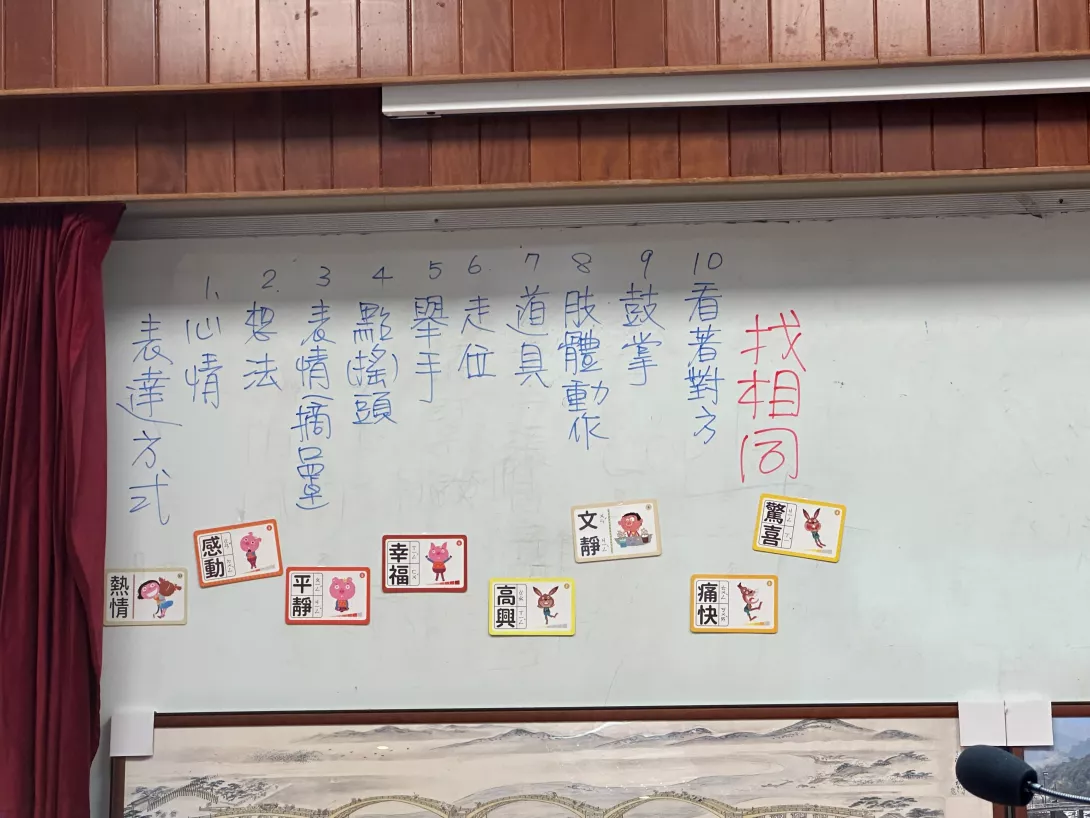 表達方式
1、心情
2. 想法
3 表情(摘口罩)
4 點(搖)頭
5 舉手
6. 走位
7 道具
8 肢體動作
9 鼓掌
10 看著對方
找相同
熱情
感動
平靜
幸福
高興
文靜
痛快
驚喜